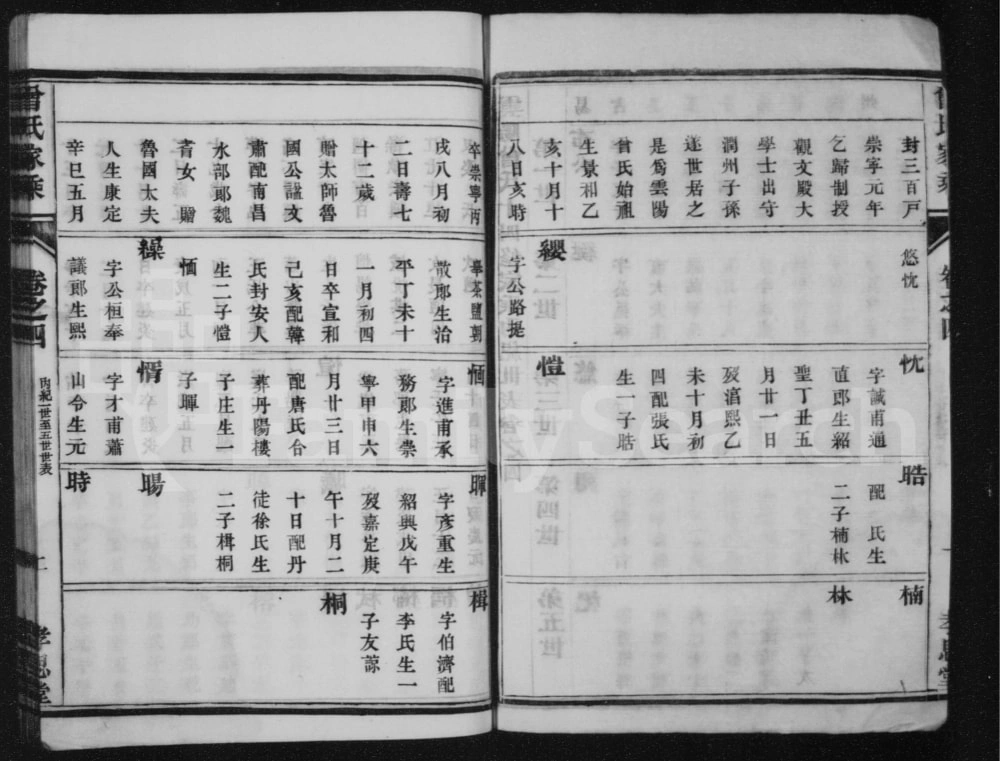 封三百戸
崇寧元年
乞歸制授
觀文殿大
學士出守
潤州子孫
遂世居之
是爲雲陽
曾氏始祖
生景和乙
亥十月十
八日亥時
悠忱
纓
字公路提
忱
字誠甫通
直郎生紹
聖丁丑五
月廿一日
歿淳熙乙
未十月初
四配張氏
生一子晧
愷
晧
配 氏生
二子楠林
楠
林
卒崇寧丙
戌八月初
二日壽七
十二歲
贈太師魯
國公諡文
肅配南昌
水部郎魏
青女 贈
魯國太夫
人生康定
辛巳五月
舉茶鹽朝
散郎生治
平丁未十
一月初四
日卒宣和
己亥配韓
氏封安人
生二子愷
愐
繰
字公桓奉
議郎生熙
愐
字進甫承
務郎生崇
寧甲申六
月廿三日
配唐氏合
葬丹陽樓
子庄生一
子暉
惰
字才甫蕭
山令生元
暉
字彥重生
紹興戊午
歿嘉定庚
午十月二
十日配丹
徒徐氏生
二子楫桐
暘
時
楫
字伯濟配
李氏生一
子友諒
桐
曾氏家乘
卷之四
内紀一世至五世世表
孝思堂
FamilySearch